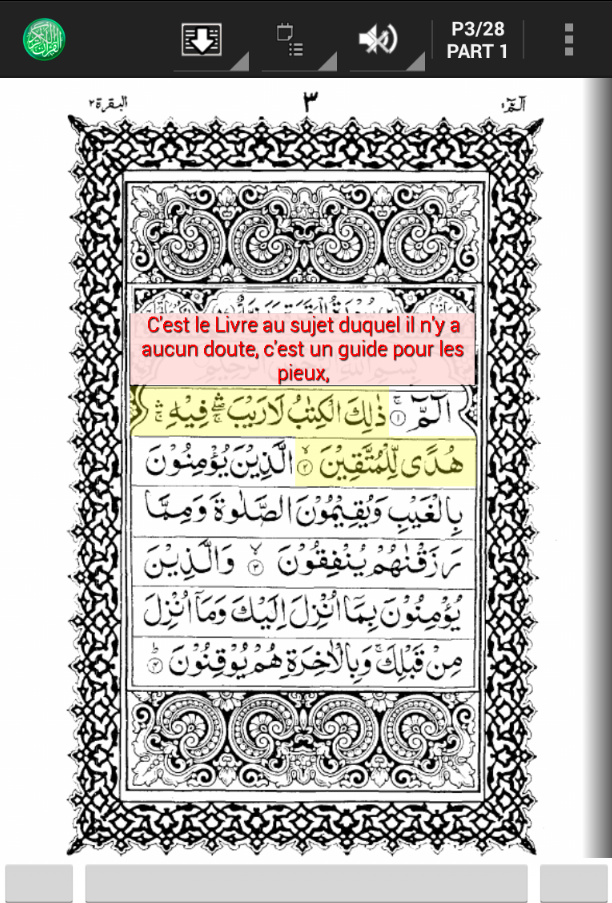 P3/28
PART 1
الٓمّٓ ١
٣
البقرة ٢
C'est le Livre au sujet duquel il n'y a
aucun doute, c'est un guide pour les
pieux,
الٓمّٓ ۚ ۝١ ذٰلِكَ الْكِتٰبُ لَا رَيْبَ ۛ فِيْهِ ۛ
هُدًى لِّلْمُتَّقِيْنَ ۙ ۝٢ الَّذِيْنَ يُؤْمِنُوْنَ
بِالْغَيْبِ وَيُقِيْمُوْنَ الصَّلٰوةَ وَمِمَّا
رَزَقْنٰهُمْ يُنْفِقُوْنَ ۙ ۝٣ وَالَّذِيْنَ
يُؤْمِنُوْنَ بِمَآ اُنْزِلَ اِلَيْكَ وَمَآ اُنْزِلَ
مِنْ قَبْلِكَ ۚ وَبِالْاٰخِرَةِ هُمْ يُوْقِنُوْنَ ؕ ۝٤